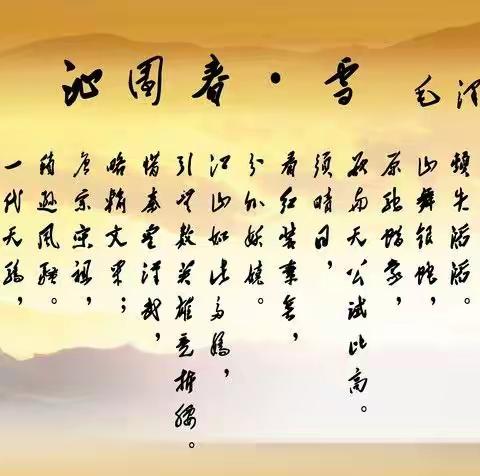 沁园春·雪 毛泽
顿失滔滔。
山舞银蛇，
原驰蜡象，
欲与天公试比高。
须晴日，
看红装素裹，
分外妖娆。
江山如此多娇，
引无数英雄竞折腰。
惜秦皇汉武，
略输文采；
唐宗宋祖，
稍逊风骚。
一代天骄，